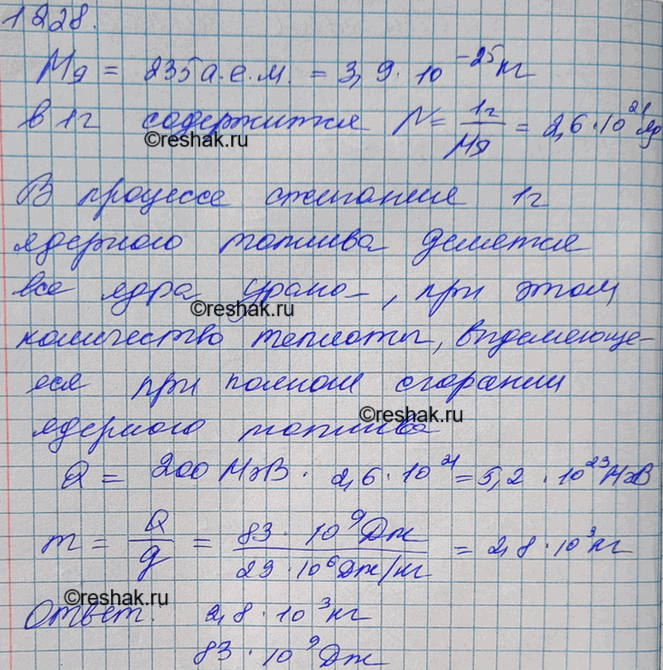 1228.
Mя = 235 а.е.м. = 3,9 · 10⁻²⁵ кг
в 1г содержится N = 1г/Mя = 2,6 · 10²¹ яд
©reshak.ru
В процессе сжигания 1г
ядерного топлива делятся
все ядра урана, при этом
©reshak.ru
количество теплоты, выделяюще-
еся при полном сгорании
©reshak.ru
ядерного топлива
Q = 200 МэВ · 2,6 · 10²¹ = 5,2 · 10²³ МэВ
m = Q/q = 83 · 10⁹ Дж / 29 · 10⁶ Дж/кг = 2,8 · 10³ кг
©reshak.ru
Ответ: 2,8 · 10³ кг
83 · 10⁹ Дж